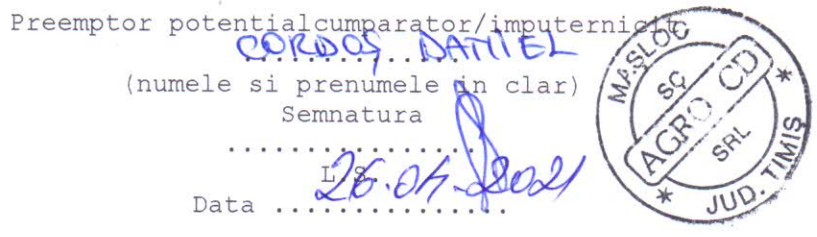 Preemptor potentialcumparator/imputernicit
CORDOȘ DANIEL
(numele si prenumele in clar)
Semnatura
....................
L.S.
26.04.2021
Data ................
MASLOC
SC
AGRO CD
SRL
* JUD. TIMIȘ *